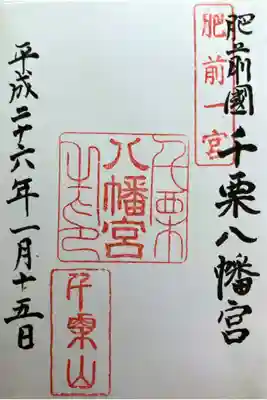 肥前國 千栗八幡宮
肥前一宮
八幡宮
千栗山
平成二十六年一月十五日